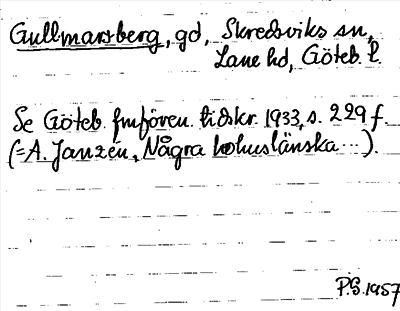 Gullmarsberg, gd, Skredsviks sn,
Lane hd, Göteb. l.
Se Göteb. fmfören. tidskr. 1933, s. 229 f.
(= A. Janzén, Några bohuslänska ...).
P.G. 1957